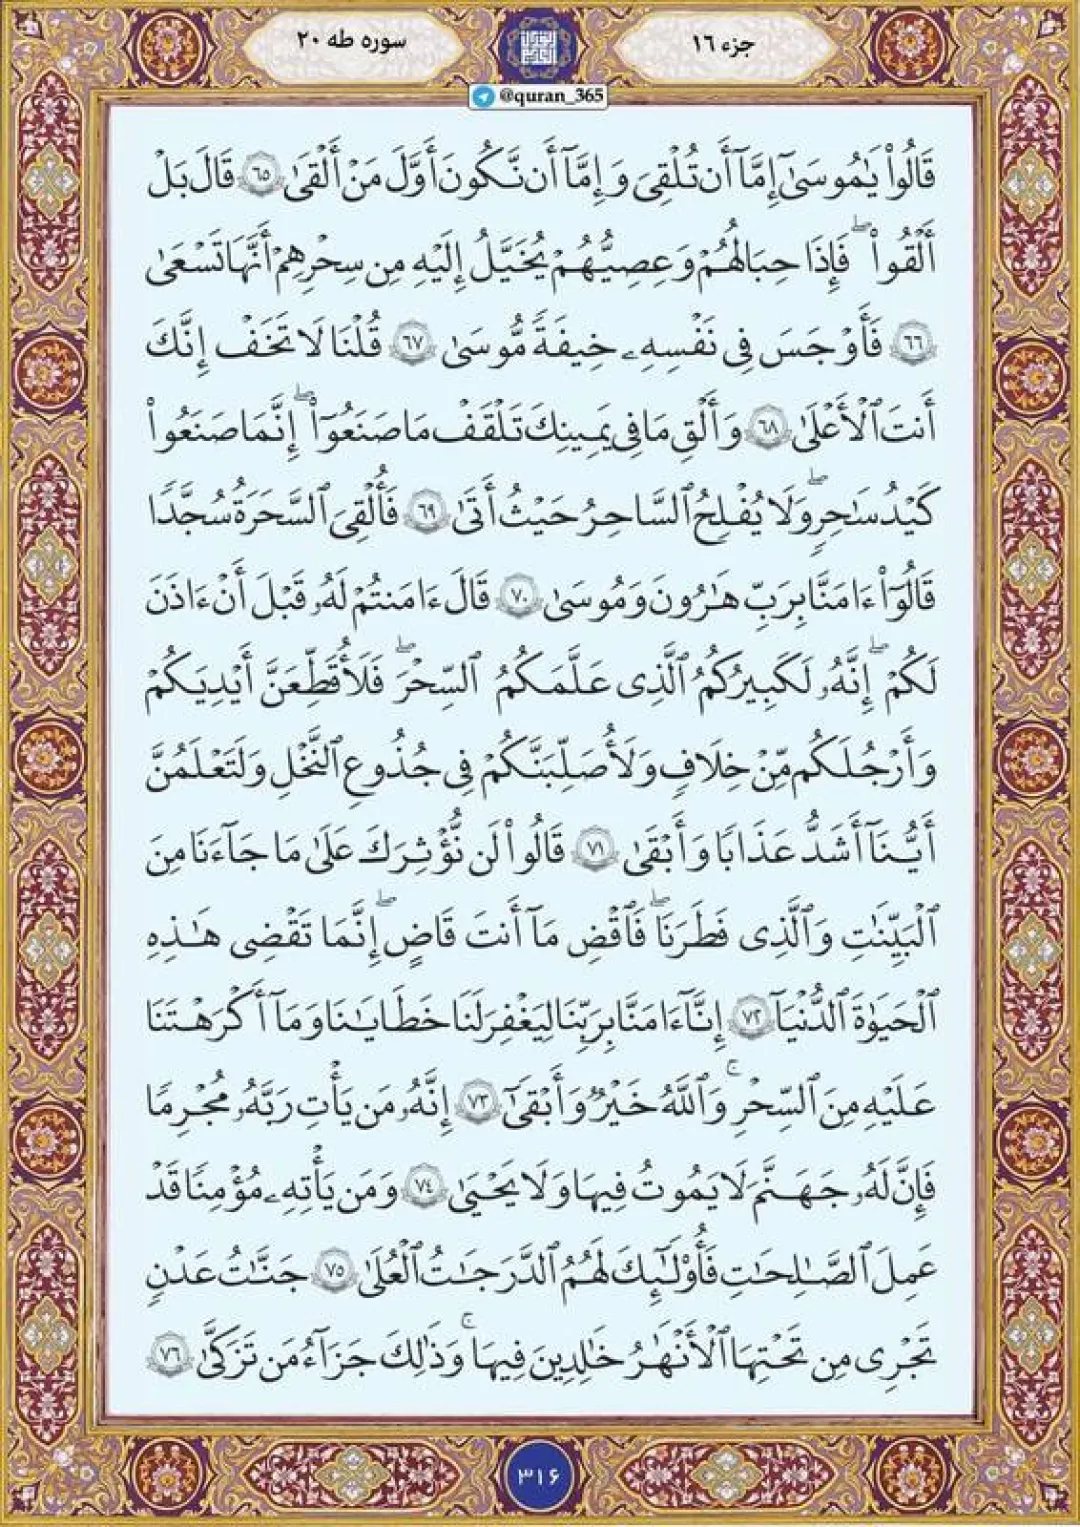 جزء ۱۶
سوره طه ۲۰
@quran_365
قَالُوا۟ يَٰمُوسَىٰٓ إِمَّآ أَن تُلْقِىَ وَإِمَّآ أَن نَّكُونَ أَوَّلَ مَنْ أَلْقَىٰ ۶۵ قَالَ بَلْ
أَلْقُوا۟ ۖ فَإِذَا حِبَالُهُمْ وَعِصِيُّهُمْ يُخَيَّلُ إِلَيْهِ مِن سِحْرِهِمْ أَنَّهَا تَسْعَىٰ
۶۶ فَأَوْجَسَ فِى نَفْسِهِۦ خِيفَةً مُّوسَىٰ ۶۷ قُلْنَا لَا تَخَفْ إِنَّكَ
أَنتَ ٱلْأَعْلَىٰ ۶۸ وَأَلْقِ مَا فِى يَمِينِكَ تَلْقَفْ مَا صَنَعُوٓا۟ ۖ إِنَّمَا صَنَعُوا۟
كَيْدُ سَٰحِرٍ ۖ وَلَا يُفْلِحُ ٱلسَّاحِرُ حَيْثُ أَتَىٰ ۶۹ فَأُلْقِىَ ٱلسَّحَرَةُ سُجَّدًا
قَالُوٓا۟ ءَامَنَّا بِرَبِّ هَٰرُونَ وَمُوسَىٰ ۷۰ قَالَ ءَامَنتُمْ لَهُۥ قَبْلَ أَنْ ءَاذَنَ
لَكُمْ ۖ إِنَّهُۥ لَكَبِيرُكُمُ ٱلَّذِى عَلَّمَكُمُ ٱلسِّحْرَ ۖ فَلَأُقَطِّعَنَّ أَيْدِيَكُمْ
وَأَرْجُلَكُم مِّنْ خِلَافٍ وَلَأُصَلِّبَنَّكُمْ فِى جُذُوعِ ٱلنَّخْلِ وَلَتَعْلَمُنَّ
أَيُّنَآ أَشَدُّ عَذَابًا وَأَبْقَىٰ ۷۱ قَالُوا۟ لَن نُّؤْثِرَكَ عَلَىٰ مَا جَآءَنَا مِنَ
ٱلْبَيِّنَٰتِ وَٱلَّذِى فَطَرَنَا ۖ فَٱقْضِ مَآ أَنتَ قَاضٍ ۖ إِنَّمَا تَقْضِى هَٰذِهِ
ٱلْحَيَوٰةَ ٱلدُّنْيَآ ۷۲ إِنَّآ ءَامَنَّا بِرَبِّنَا لِيَغْفِرَ لَنَا خَطَايَٰنَا وَمَآ أَكْرَهْتَنَا
عَلَيْهِ مِنَ ٱلسِّحْرِ ۗ وَٱللَّهُ خَيْرٌ وَأَبْقَىٰٓ ۷۳ إِنَّهُۥ مَن يَأْتِ رَبَّهُۥ مُجْرِمًا
فَإِنَّ لَهُۥ جَهَنَّمَ لَا يَمُوتُ فِيهَا وَلَا يَحْيَىٰ ۷۴ وَمَن يَأْتِهِۦ مُؤْمِنًا قَدْ
عَمِلَ ٱلصَّٰلِحَٰتِ فَأُو۟لَٰٓئِكَ لَهُمُ ٱلدَّرَجَٰتُ ٱلْعُلَىٰ ۷۵ جَنَّٰتُ عَدْنٍ
تَجْرِى مِن تَحْتِهَا ٱلْأَنْهَٰرُ خَٰلِدِينَ فِيهَا ۚ وَذَٰلِكَ جَزَآءُ مَن تَزَكَّىٰ ۷۶
۳۱۶